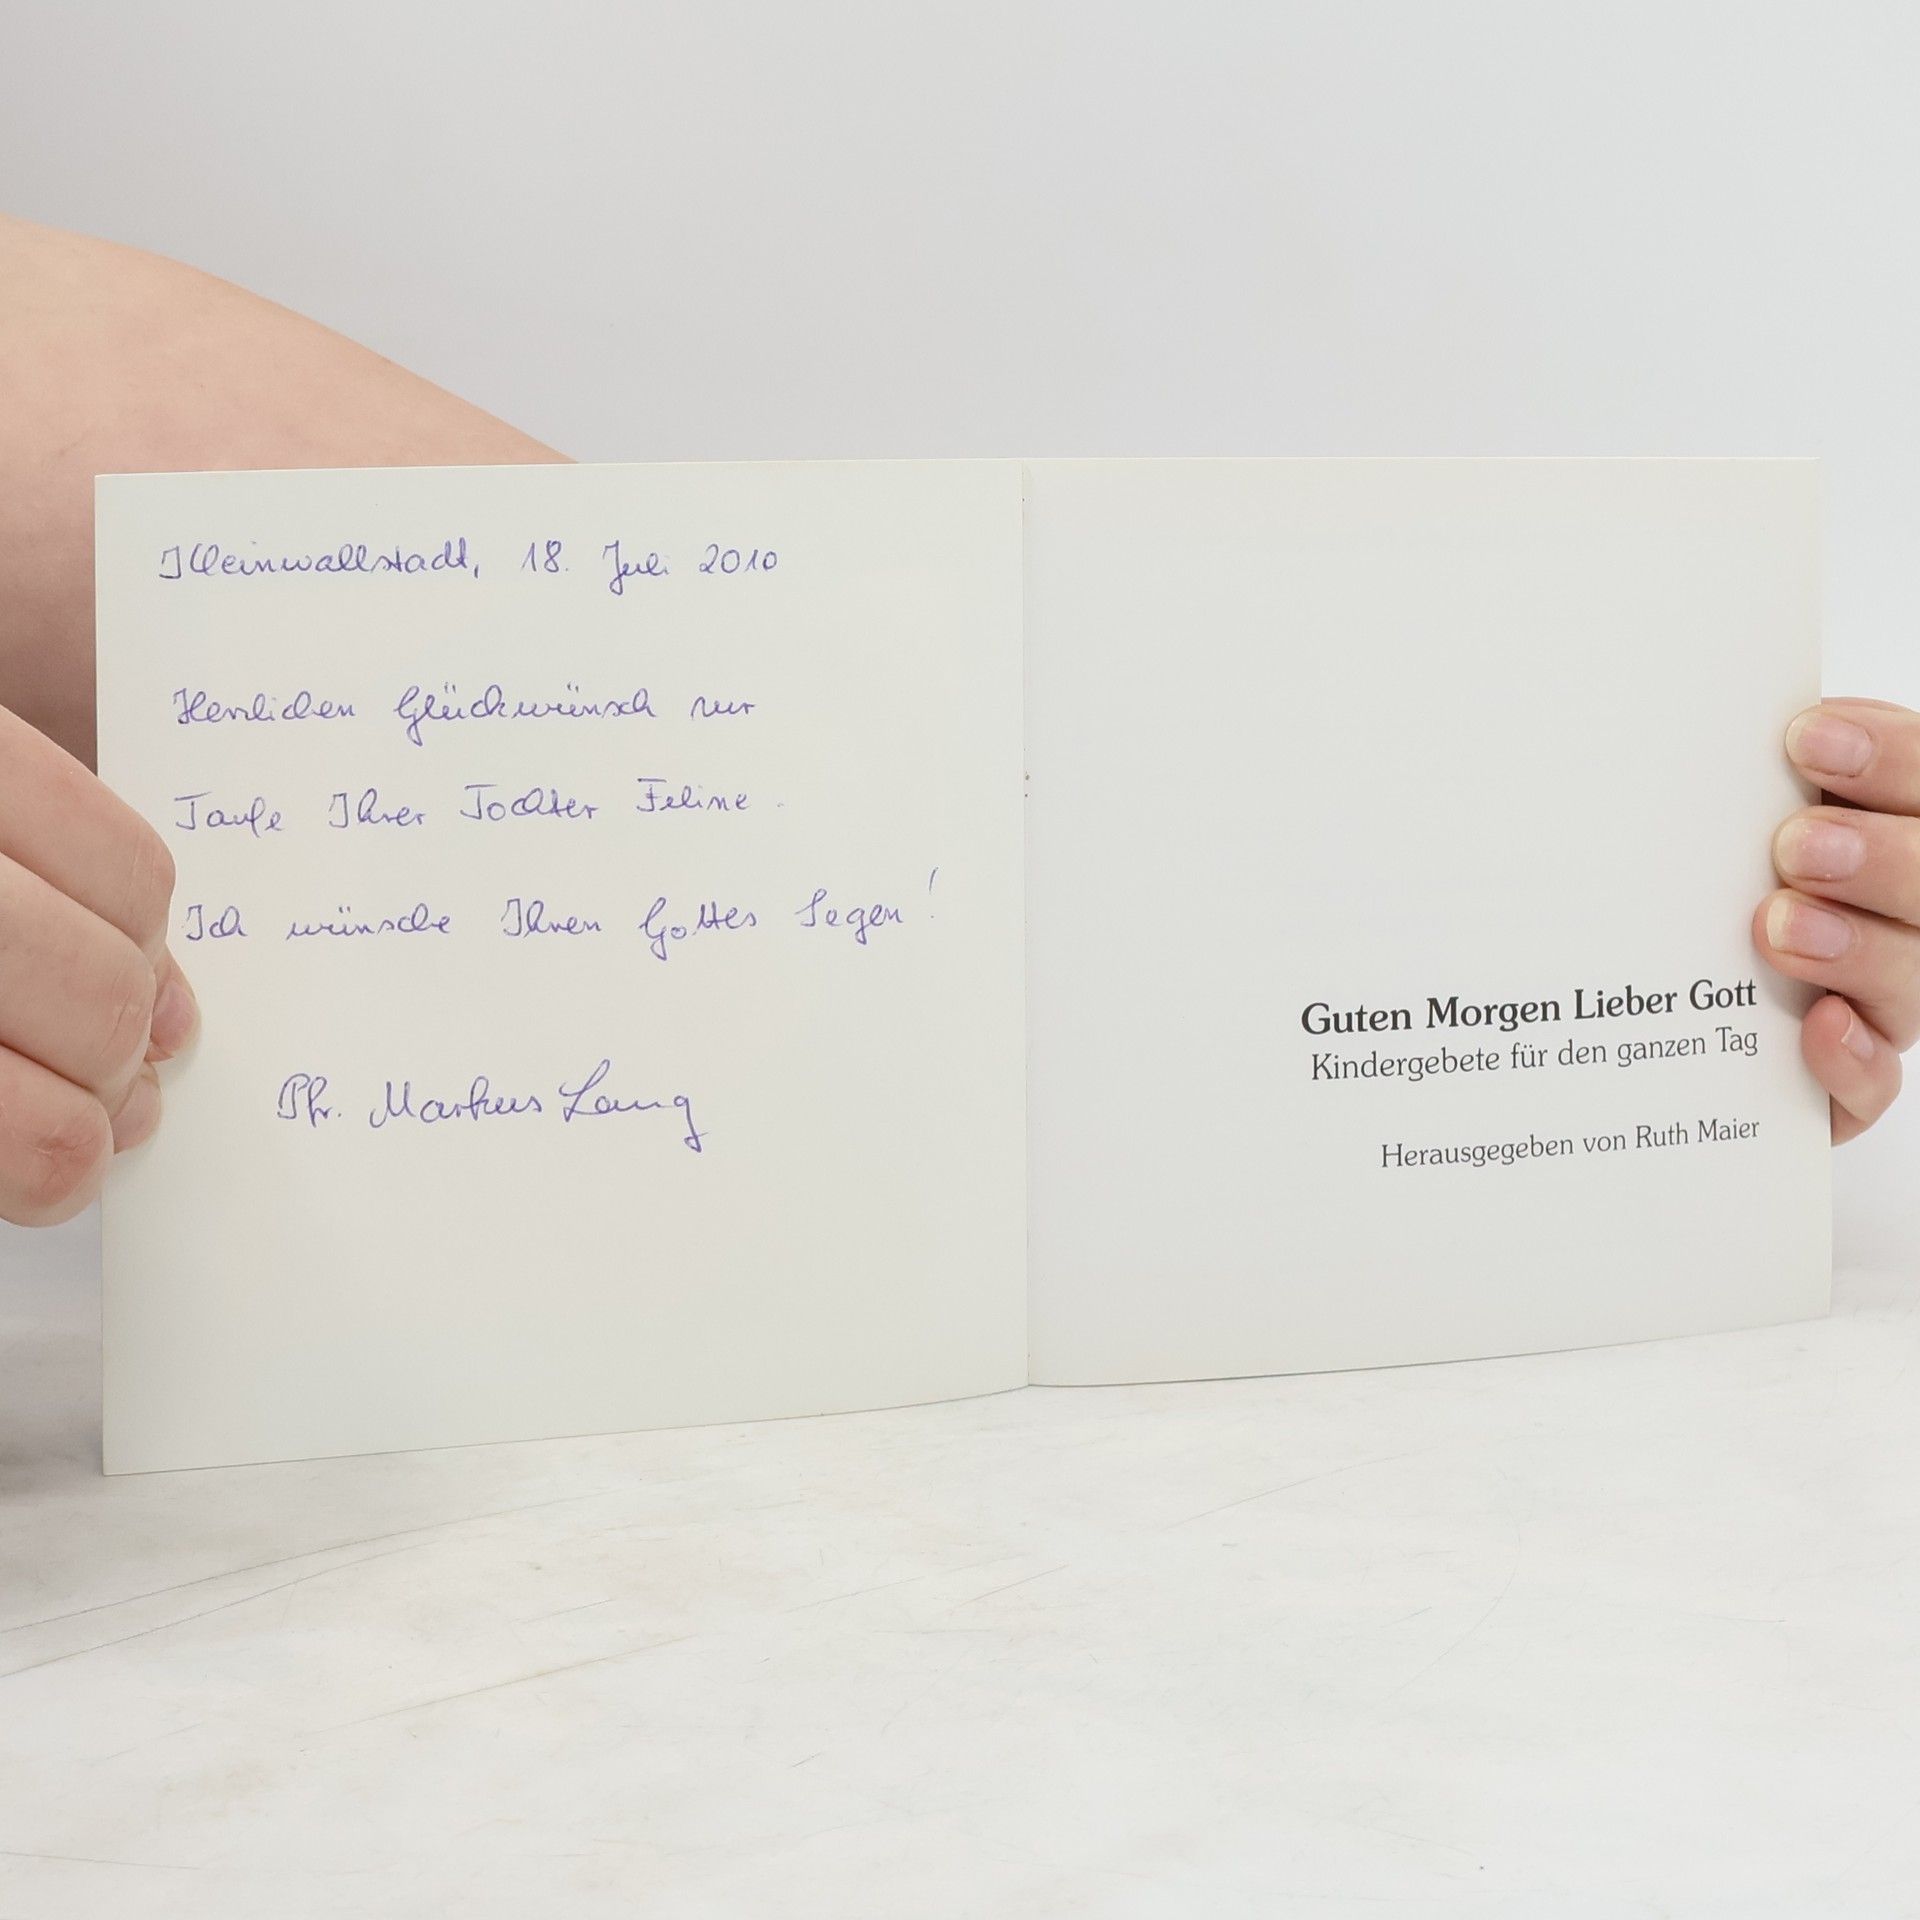 Kleinwallstadt, 18. Juli 2010
Herzlichen Glückwünsch zur
Taufe Ihrer Tochter Feline.
Ich wünsche Ihnen Gottes Segen!
Pfr. Markus Lang
Guten Morgen Lieber Gott
Kindergebete für den ganzen Tag
Herausgegeben von Ruth Maier